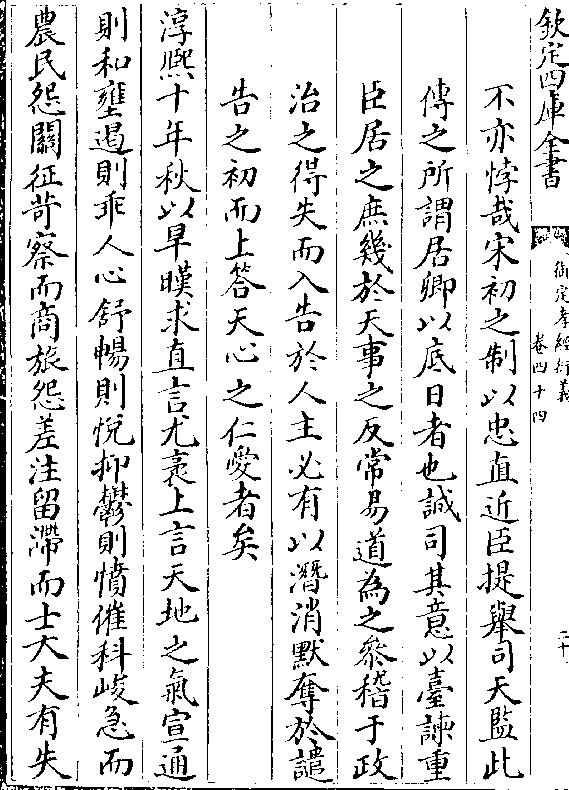 欽定四庫全書
御定孝經衍義
卷四十四
二十
不亦悖哉宋初之制以忠直近臣提舉司天監此
傳之所謂居卿以底日者也誠司其意以臺諫重
臣居之庶幾於天事之反常易道為之參稽于政
治之得失而入告於人主必有以潛消默奪於譴
告之初而上答天心之仁愛者矣
淳熙十年秋以旱暵求直言尤袤上言天地之氣宣通
則和壅遏則乖人心舒暢則悅抑鬱則憤催科峻急而
農民怨關征苛察而商旅怨差注留滯而士大夫有失